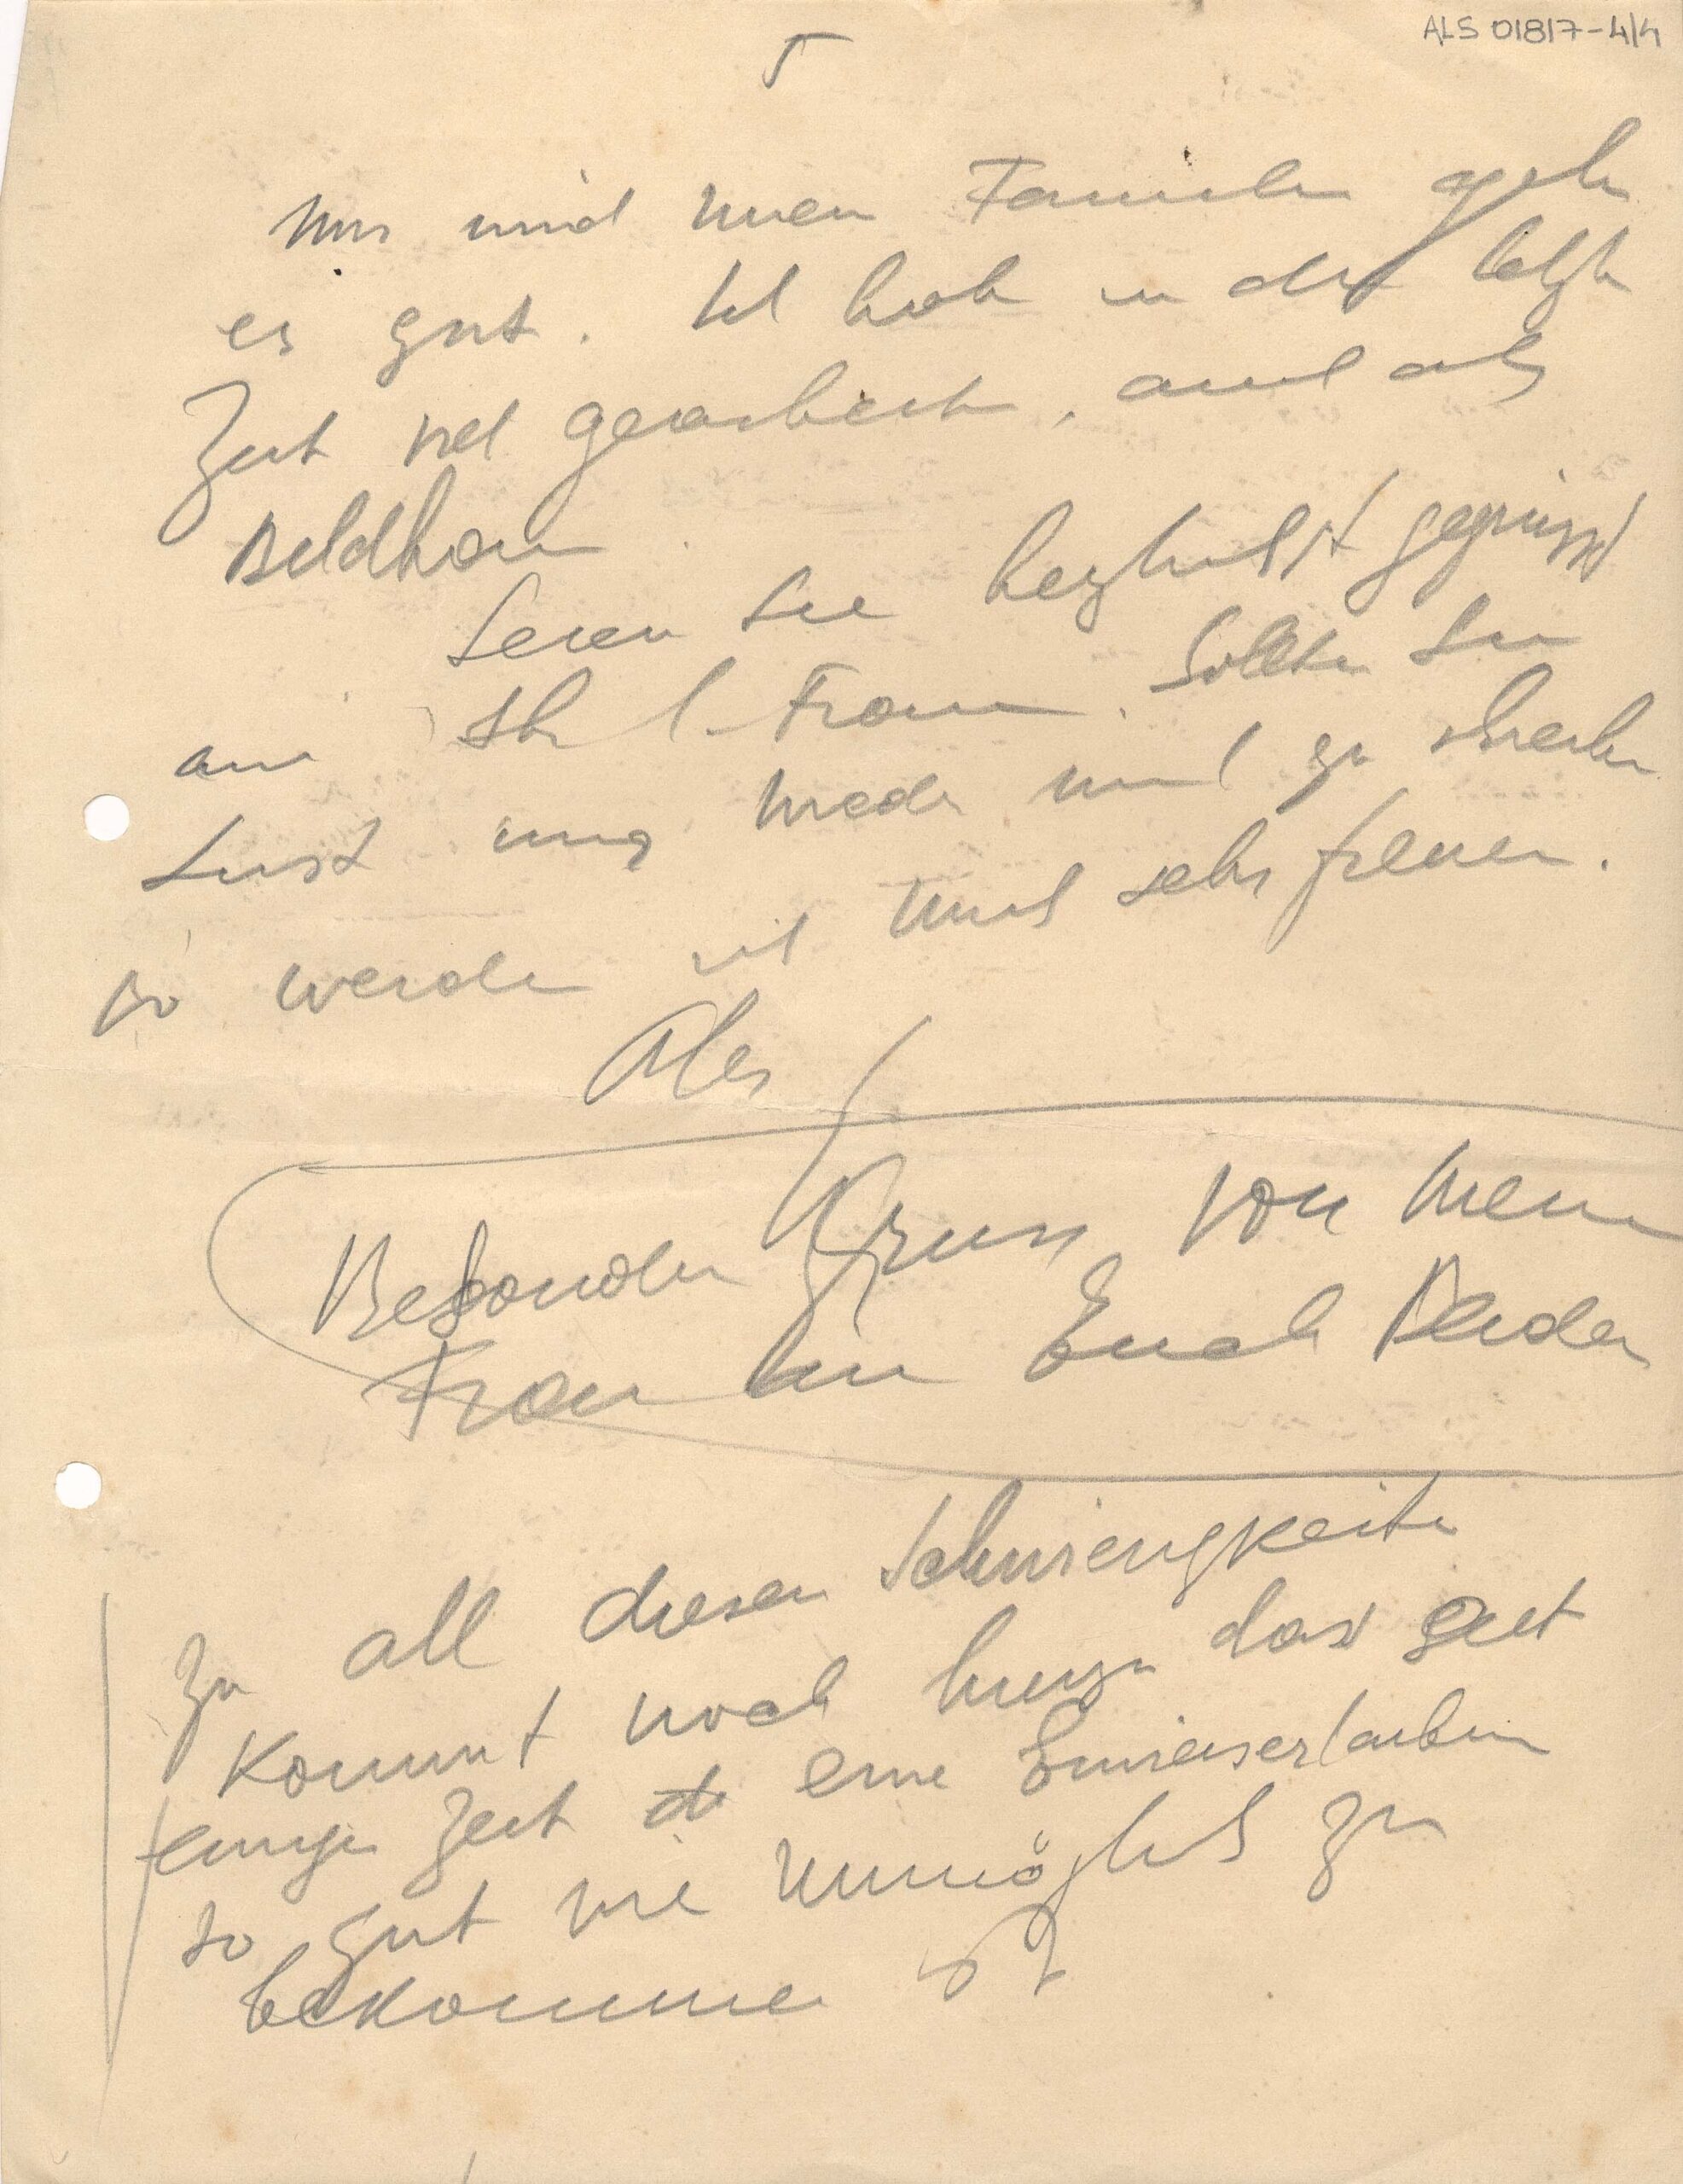 ALS 01817-4/4
5
Mir und meiner Familie geht
es gut. Ich habe in der letzten
Zeit viel gearbeitet, auch als
Bildhauer
Seien Sie herzlichst gegrüsst
Ihre l. Frau. Sollten Sie
Lust wieder mal zu schreiben
so werde ich mich sehr freuen.
Besonderen Gruss von meiner
Frau an Euch Beiden
Zu all diesen Schwierigkeiten
kommt noch hinzu dass seit
einiger Zeit eine Einreiseerlaubnis
so gut wie unmöglich zu
bekommen ist